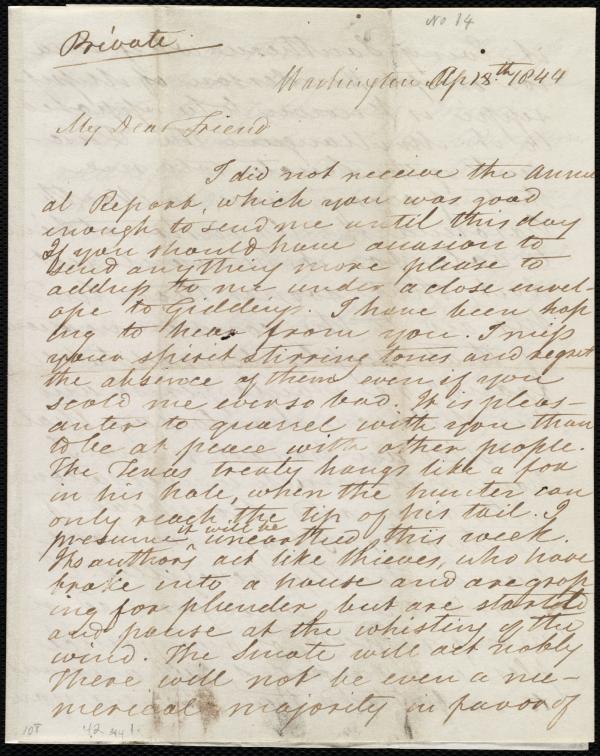 No 14
Private
Washington Ap 18th 1844
My Dear Friend
I did not receive the Annu
al Report, which you was good
enough to send me until this day
If you should have occasion to
send anything more please to
address to me under a close envel-
ope to Giddings. I have been hop
ing to hear from you. I miss
your spirit stirring tones and regret
the absence of them even if you
scold me ever so bad. It is pleas-
anter to quarrel with you than
to be at peace with other people.
The Texas treaty hangs like a fox
in his hole, when the hunter can
only reach the tip of his tail. I
presume it will be unearthed this week.
Its authors act like thieves, who have
broke into a house and are grop
ing for plunder, but are startled
and pause at the whistling of the
wind. The Senate will act nobly
There will not be even a nu-
merical majority in favor of